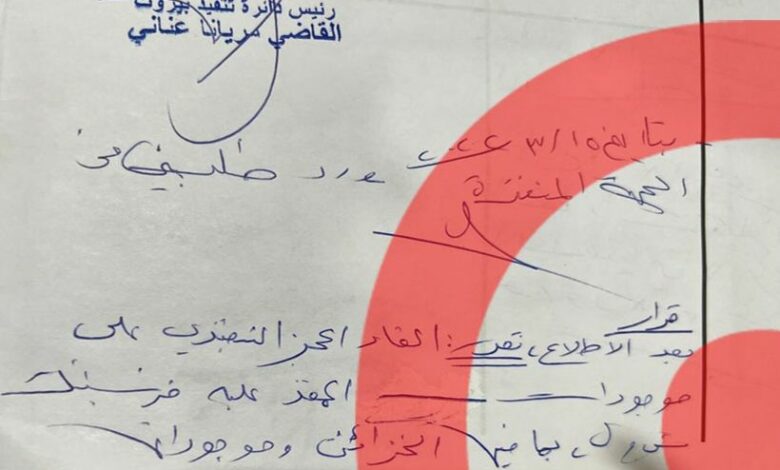 رئيس دائرة تنفيذ بيروت
القاضي مريانا عناني
بتاريخ ١٥/٣/٢٠٢٢ ورد طلبين من
الجهة المنفذة
قرار
بعد الاطلاع، نقرر: القاء الحجز التنفيذي على
موجودات المنفذ عليه فرنسبنك
ش م ل، بما فيها الخزائن وموجوداتها